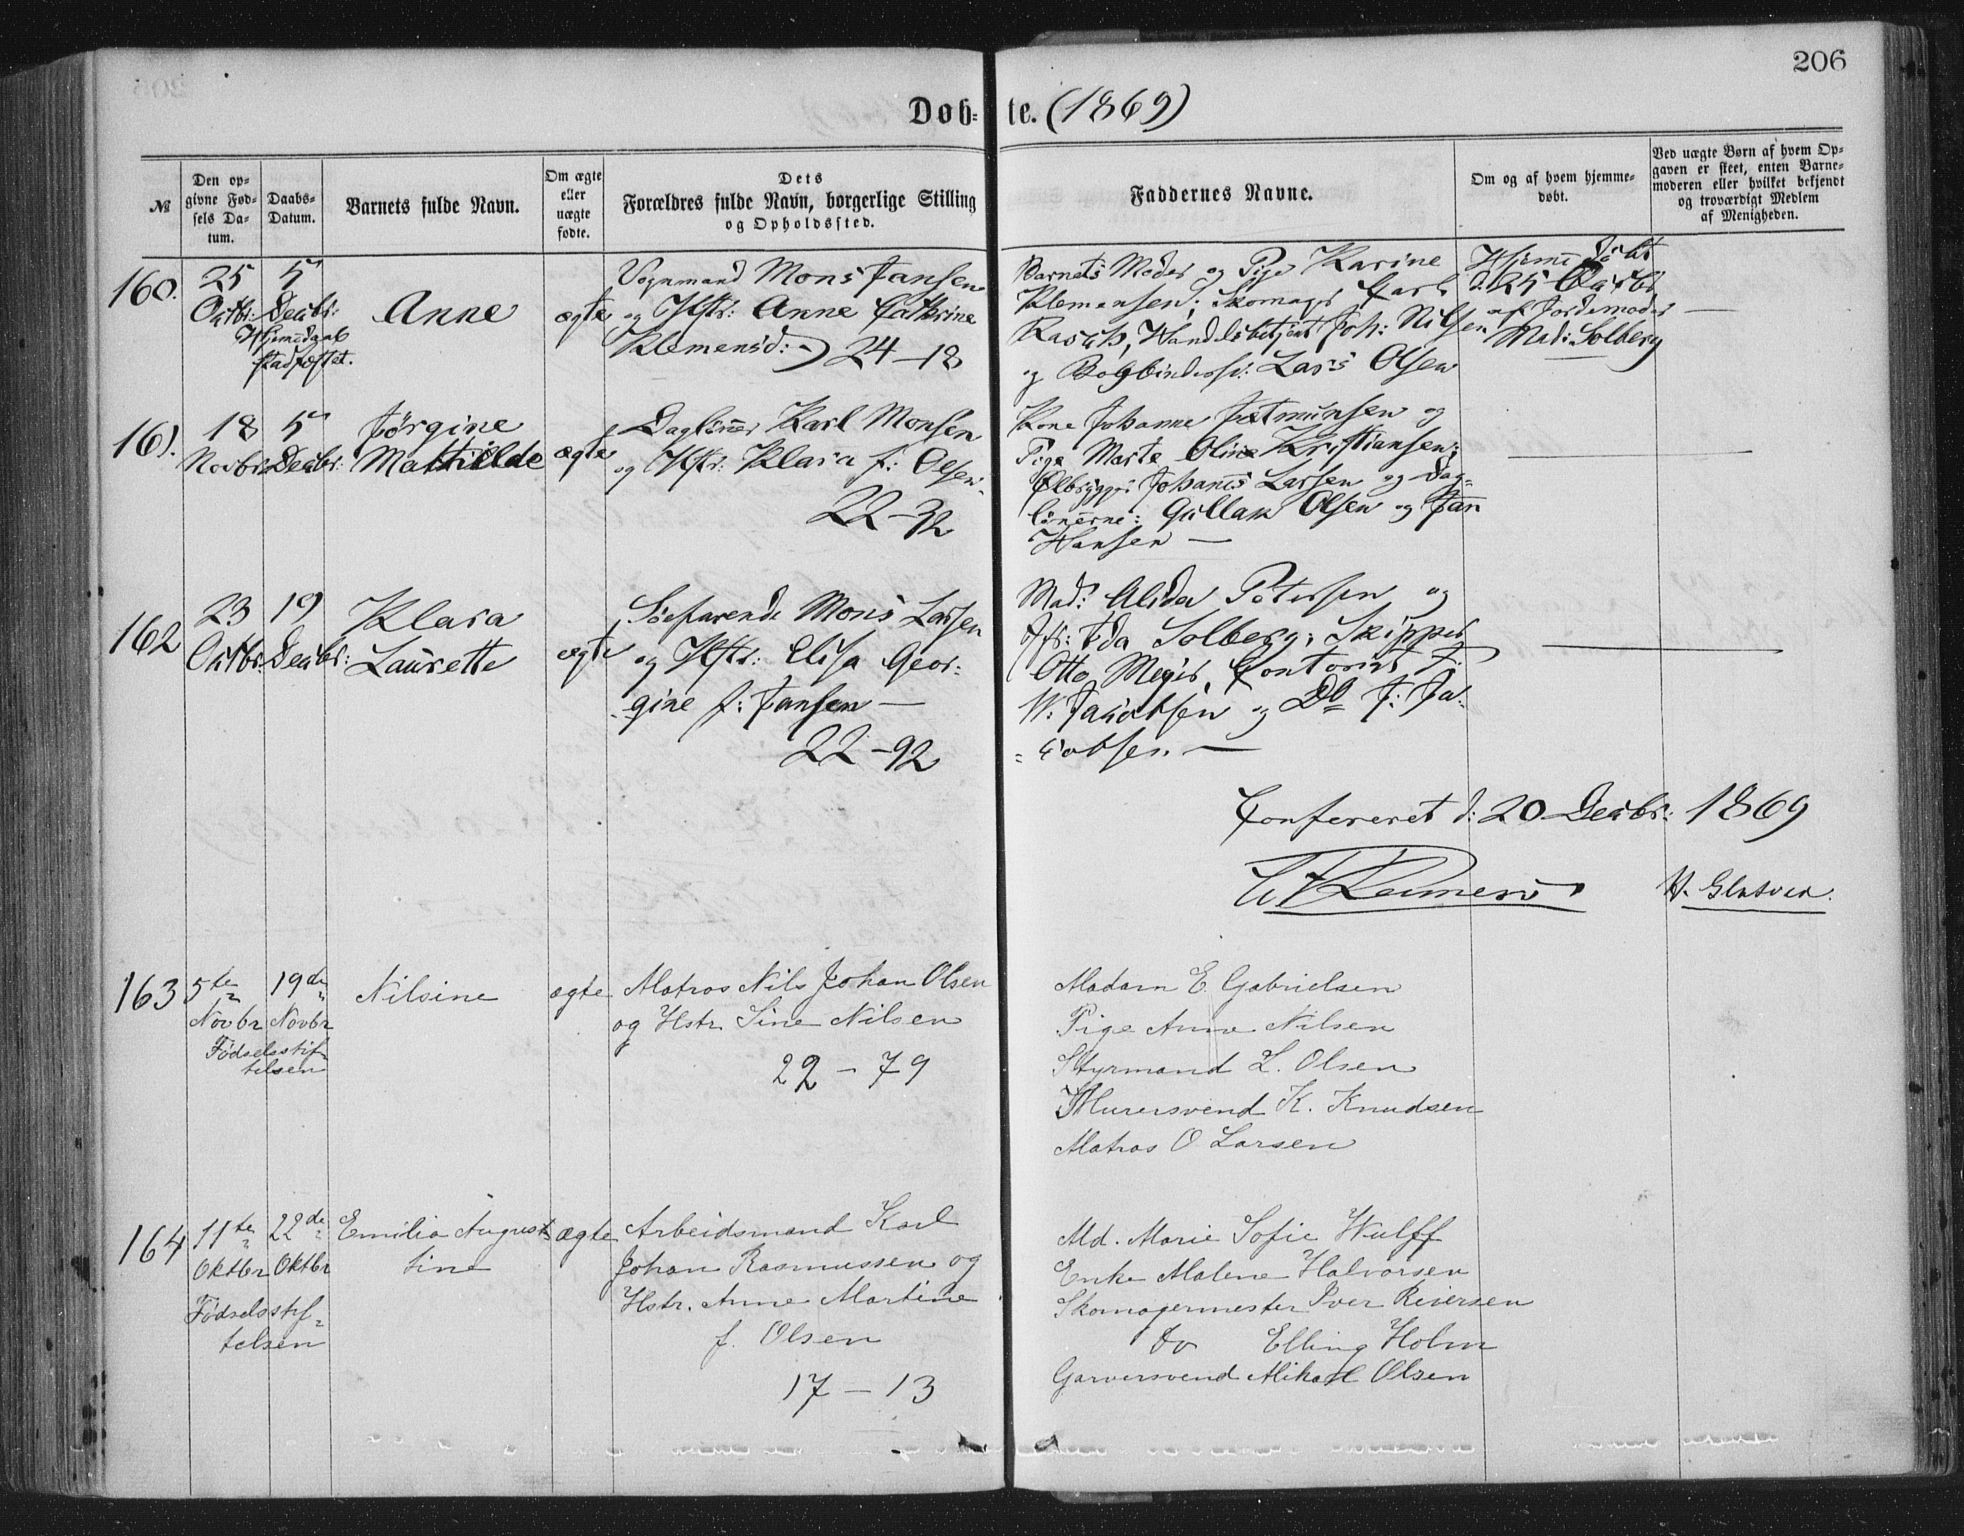 206
Døb= te. (1869)
№
Den op=
givne Fød=
sels Da=
tum.
Daabs=
Datum.
Barnets fulde Navn.
Om ægte
eller
uægte
fødte.
Dets
Forældres fulde Navn, borgerlige Stilling
og Opholdssted.
Faddernes Navne.
Om og af hvem hjemme=
døbt.
Ved uægte Børn af hvem Op=
gaven er skeet, enten Barne=
moderen eller hvilket bekjendt
og troværdigt Medlem
af Menigheden.
160.
25
Oktbr:
5
Decbr:
Hjemedaab
stadfæstet.
Anne
ægte
Vognmand Mons Jansen
og Hstr: Anne Cathrine
Klemensd:
24-18
Barnets Moder og Pige Karine
Klemensen; Skomager Carl
Rasch, Handelsbetjent Joh: Nilsen
og Bogbindersv: Lars Olsen
Hjeme døbt
d. 25 Octbr
af Jordemoder
Mad: Solberg
161.
18
Novbr
5
Decbr:
Jørgine
Mathilde
ægte
Daglöner Karl Monsen
og Hstr: Klara f: Olsen
22-32
Kone Johanne Jetmunsen og
Pige Marte Oline Kristiansen;
Ølbrygger Johanes Larsen og Dag=
lönerne: Gullak Olsen og Jan
Hansen —
162
23
Oktbr.
19
Decbr:
Klara
Laurette
ægte
Söefarende Mons Larsen
og Hstr: Elisa Geor-
gine f: Jansen —
22-92
Mad: Alida Petersen og
Jfr: Ida Solberg; Skipper
Otto Meyer, Contorist F:
W: Jacobsen og Do J: Ja-
=cobsen. —
Confereret d: 20 Decbr: 1869
H. Glatved.
163
5te
Novbr
19de
Novbr
Fødselsstif-
telsen
Nilsine
ægte
Matros Nils Johan Olsen
og Hstr. Sine Nilsen
22 - 79
Madam E. Gabrielsen
Pige Anne Nilsen
Styrmand L. Olsen
Murersvend K. Knudsen
Matros O. Larsen
164
11te
Oktbr
22de
Oktbr
Fødselsstif-
telsen
Emilie August-
tine
ægte
Arbeidsmand Karl
Johan Rasmussen og
Hstr. Anne Martine
f. Olsen
17 - 13
Md. Marie Sofie Wulff
Enke Malene Halvorsen
Skomagermester Iver Reiersen
Do Elling Holm
Garversvend Mikael Olsen